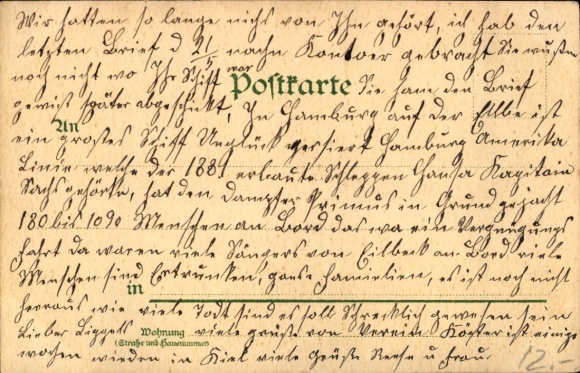 Wir hatten so lange nichs von Ihn gehört, ich hab den
letzten Brief d 21/5 nachn Kontoer gebracht Sie wusten
noch nicht wo Ihr Schiff war
Postkarte
Sie ham den Brief
gewiß später abgeschickt, In Hamburg auf der Elbe ist
An
ein großes Schiff Unglück Hamburg Amerika
Linie welche der 188 erbaute Schleppen Hansa Kapitain
Sachs gehörte, hat den Dampfer Primus in Grund gejacht
180 bis Menschen an Bord das wa ein Vergnügungs
fahrt da waren viele Sängers von Eilbeck an Bord viele
Menschen sind Ertrunken, ganse Familien, es ist noch nicht
in
herraus wie viele Todt sind es soll Schrecklich gewesen sein
Lieber viele grüße von Köster ist einige
Wohnung
(Straße und Hausnummer)
wochen wieder in Kiel viele Grüße u Frau.
12.-